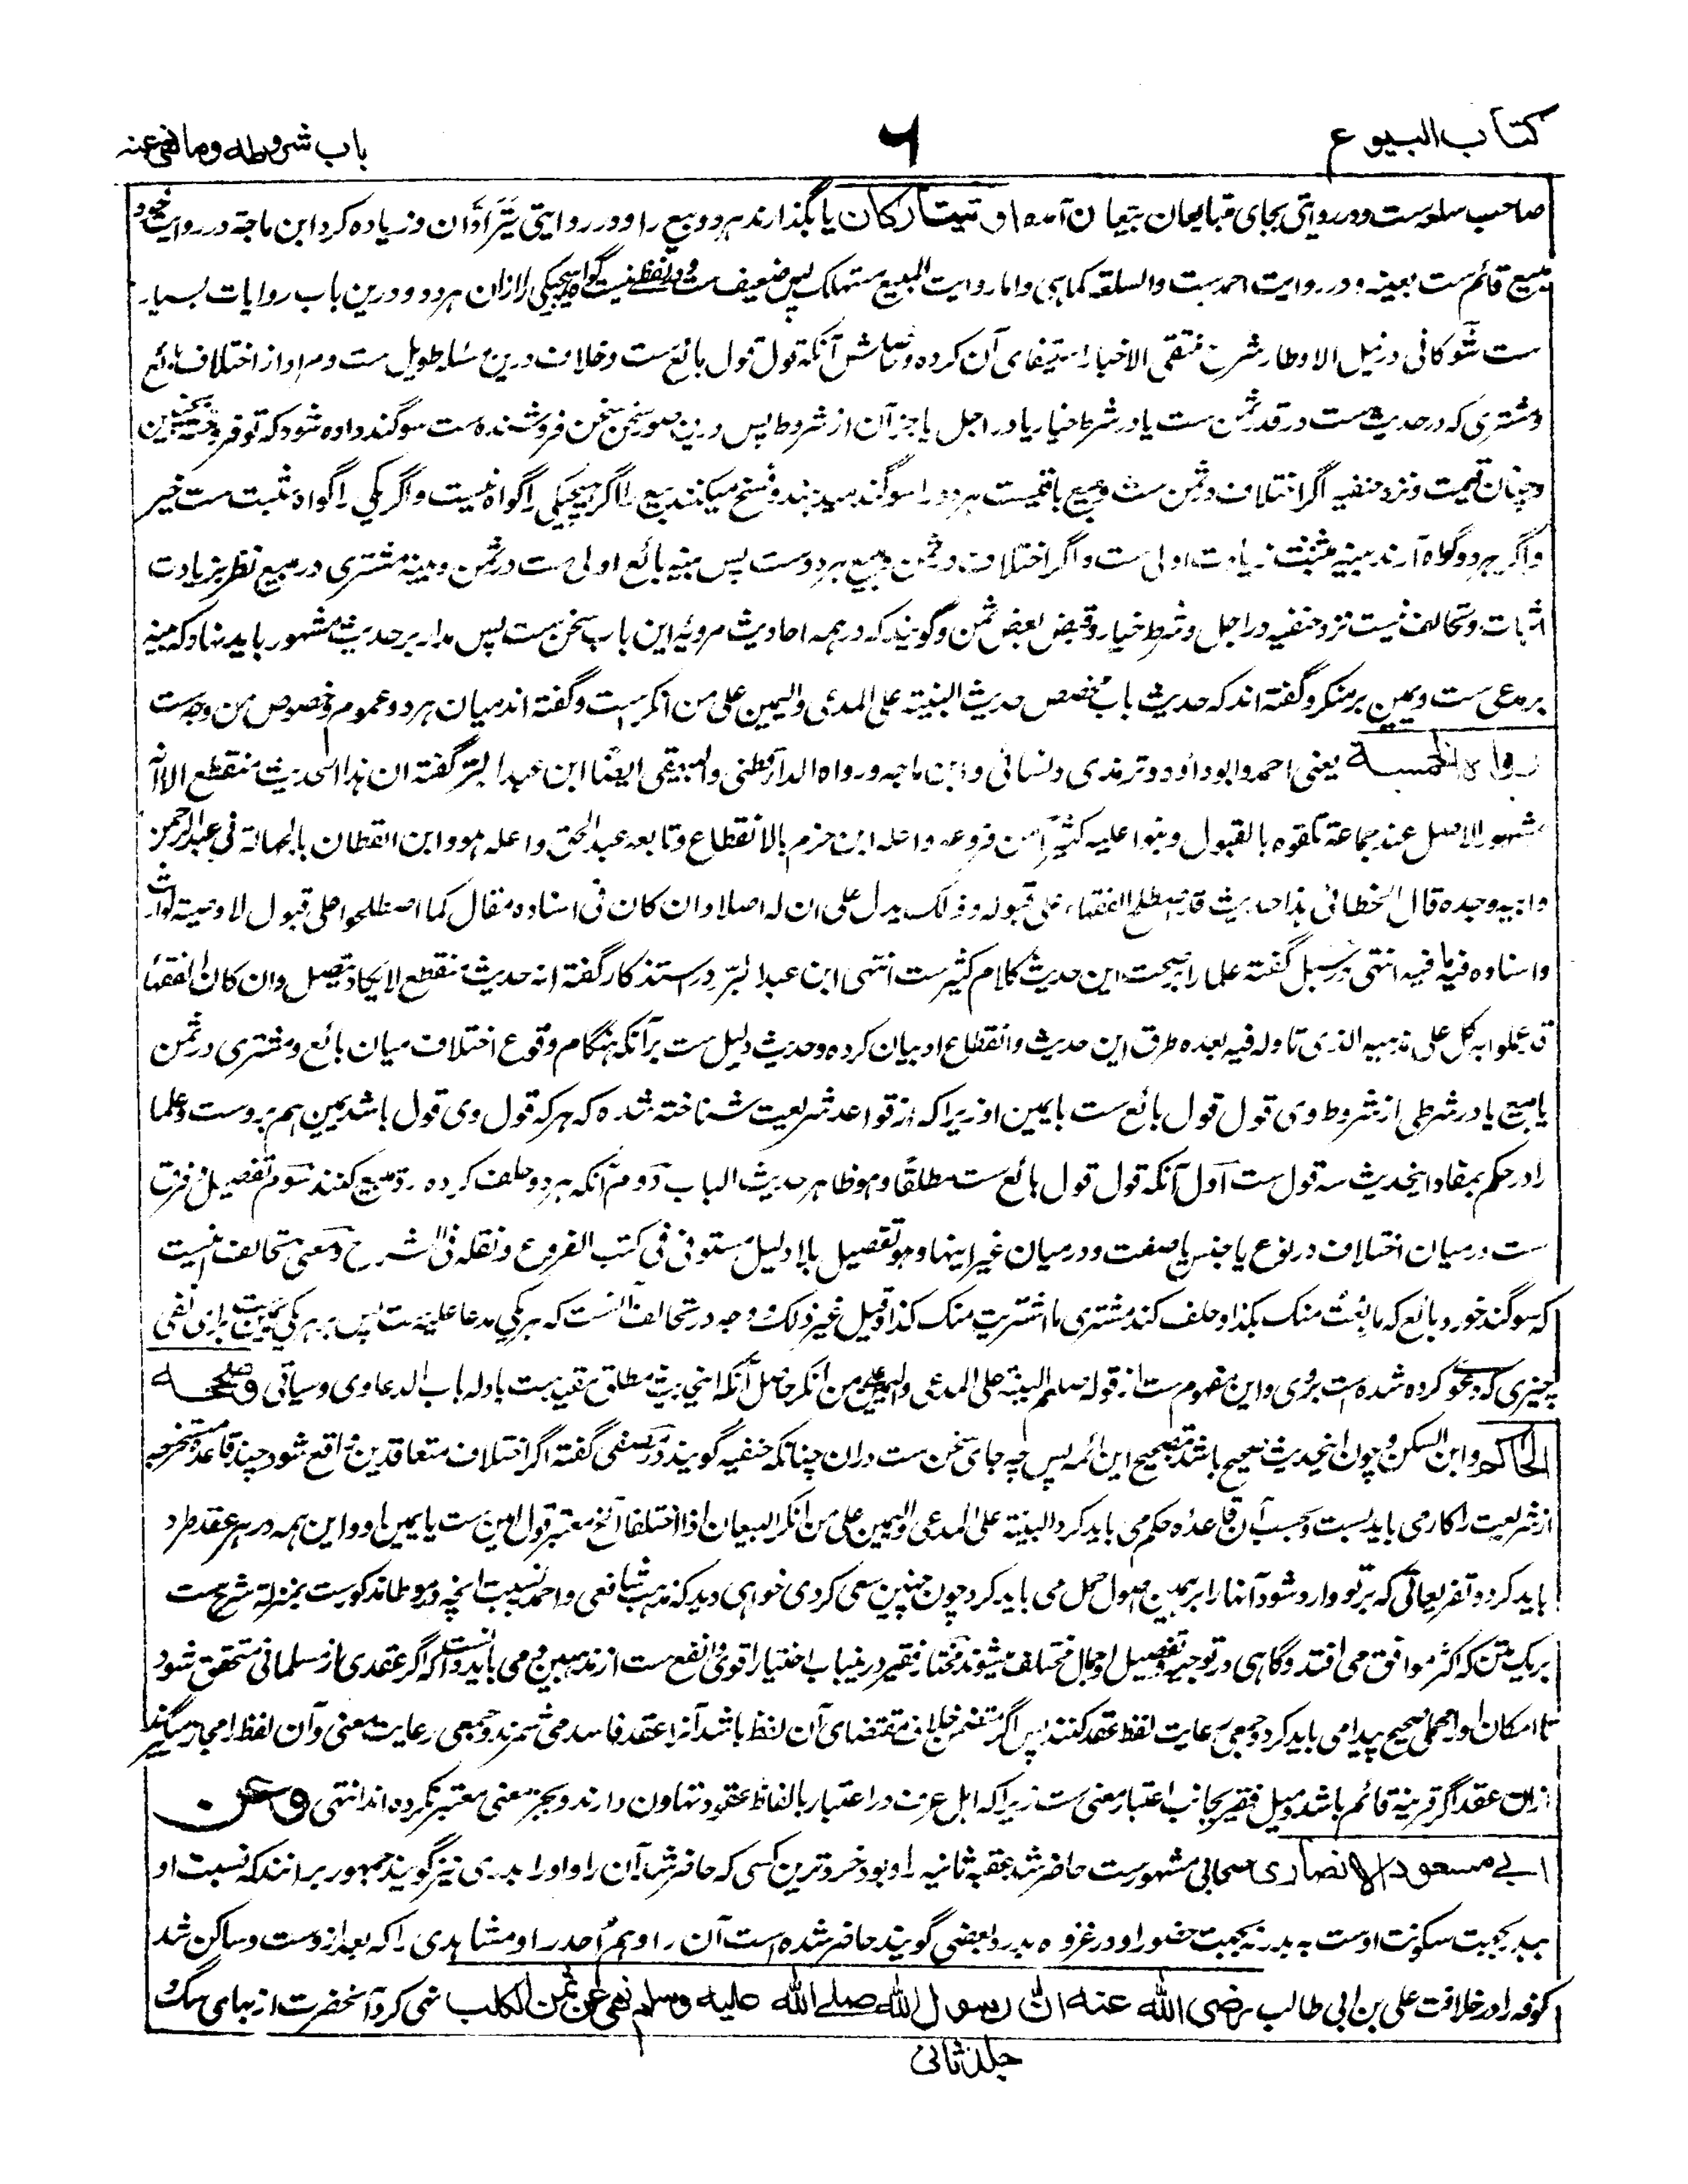 کتاب البیوع
۶
باب شروطه وما نهی عنه
صاحب سلعه ست ودر روایتی بجای متبایعان بیعان آمده او یتتارکان یا بگذارند هر دو بیع را و در روایتی یَتَرَادَّان وزیاده کرد ابن ماجة در روایت خود
مبیع قائم ست بعینه و در روایت احمدست والسلعة کما هی واما روایت المبیع مستهلک پس ضعیف ست ودر لفظی نیست گواه هیچیکی را ازان هر دو و درین باب روایات بسیار
ست شوکانی در نیل الاوطار شرح منتقی الاخبار استیفای آن کرده وحاصلش آنکه قول قول بائع ست وخلاف درین مسئله طویل ست و مراد از اختلاف بائع
ومشتری که در حدیث ست در قدر ثمن ست یا در شرط خیار یا در اجل یا جز آن از شروط پس درین صور سخن سخن فروشنده ست سوگند داده شود که تو فروختی بچنین
وچنان قیمت ونزد حنفیه اگر اختلاف در ثمن ست ومبیع باقیست هر دو را سوگند بدهند وفسخ میکنند بیع را اگر هیچیکی را گواه نیست و اگر یکی را گواه مثبت ست خیر
واگر هر دو گواه آرند بینه مثبت زیادت اولی ست واگر اختلاف در ثمن ومبیع هر دوست پس بینه بائع اولی ست در ثمن وبینه مشتری در مبیع نظر بزیادت
اثبات وتحالف نیست نزد حنفیه در اجل وشرط خیار وقبض بعض ثمن وگویند که در همه احادیث مرویه این باب سخن ست پس مدار بر حدیث مشهور باید نهاد که بینه
بر مدعی ست ویمین بر منکر وگفته اند که حدیث باب مخصص حدیث البینة علی المدعی والیمین علی من انکرست وگفته اند میان هر دو عموم وخصوص من وجه ست
رواه الخمسة یعنی احمد وابو داؤد وترمذی ونسائی وابن ماجه ورواه الدارقطنی والبیهقی ایضًا ابن عبد البر گفته ان هذا الحدیث منقطع الا انه
مشهور الاصل عند جماعة تلقوه بالقبول وبنوا علیه کثیرًا من فروعه واعله ابن حزم بالانقطاع وتابعه عبد الحق واعله هو وابن القطان بالجهالة فی عبد الرحمن
وابیه وجده قال الخطابی هذا حدیث قد اصطلح الفقهاء علی قبوله وذلک یدل علی ان له اصلا وان کان فی اسناده مقال کما اصطلحوا علی قبول لا وصیة لوارث
واسناده فیه ما فیه انتهی ودر سبل گفته علما را بصحت این حدیث کلام کثیرست انتهی ابن عبد البر در استذکار گفته انه حدیث منقطع لا یکاد یتصل وان کان الفقهاء
قد عملوا به کل علی مذهبه الذی تاوله فیه بعده طرق این حدیث وانقطاع او بیان کرده وحدیث دلیل ست بر آنکه هنگام وقوع اختلاف میان بائع ومشتری در ثمن
یا مبیع یا در شرطی از شروط وی قول قول بائع ست با یمین او زیراکه از قواعد شریعت شناخته شده که هر که قول وی قول باشد یمین هم بروست وعلما
را در حکم بمفاد اینحدیث سه قول ست اول آنکه قول قول بائع ست مطلقًا وهو ظاهر حدیث الباب دوم آنکه هر دو حلف کرده رد مبیع کنند سوم تفصیل فرق
ست درمیان اختلاف در نوع یا جنس یا صفت ودرمیان غیر اینها وهو تفصیل بلا دلیل مستوفی فی کتب الفروع ونقله فی الشرح ومعنی تحالف اینست
که سوگند خورد بائع که ما بِعتُ منک بکذا وحلف کند مشتری ما اشتریتُ منک کذا وقیل غیر ذلک ووجه در تحالف آنست که هر یکی مدعا علیه ست پس بر هر یکی یمین ست برای نفی
چیزی که دعوی کرده شده است بروی واین مفهوم ست از قوله صلعم البینة علی المدعی والیمین علی من انکر حاصل آنکه اینحدیث مطلق مقیدست بادله باب الدعاوی وسیاتی وصححه
الحاکم وابن السکن وچون اینحدیث صحیح باشد بتصحیح این ائمه پس چه جای سخن ست دران چنانکه حنفیه گویند ودر مصفی گفته اگر اختلاف متعاقدین واقع شود چند قاعده مستخرجه
از شریعت را کاری باید بست وحسب آن قاعده حکم می باید کرد البینة علی المدعی والیمین علی من انکر البیعان اذا اختلفا الخ معتبر قول امین ست با یمین او واین همه در هر عقد طرد
باید کرد وتفریعاتی که بر تو وارد شود آنها را بر همین اصول حمل می باید کرد چون چنین سعی کردی خواهی دید که مذهب شافعی واحمد نسبت آنچه در موطا مذکورست بمنزله شرح ست
بر یک متن که اکثر موافق می افتد وگاهی در توجیه وتفصیل اجمال مختلف میشوند مختار فقیر درینباب اختیار اقوی وانفع ست از مذهبین ومی باید دانست که اگر عقدی از مسلمانی متحقق شود
تا امکان او را محملی صحیح پیدا می باید کرد وجمعی رعایت لفظ عقد کنند پس اگر متضمن خلاف مقتضای آن لفظ باشد آنرا عقد فاسد می شمرند وجمعی رعایت معنی وآن لفظ را مجاز میگیرند
ازان عقد اگر قرینه قائم باشد ومیل فقیر بجانب اعتبار معنی ست زیراکه اهل عرف در اعتبار بالفاظ عقود تهاون دارند وبجز معنی معتبر نکرده اند انتهی وعن
ابی مسعود الانصاری صحابی مشهورست حاضر شد عقبه ثانیه را وبود خردترین کسی که حاضر شد آن را واو را بدری نیز گویند جمهور برانند که نسبت او
ببدر بجهت سکونت اوست به بدر نه بجهت حضور او در غزوه بدر وبعضی گویند حاضر شده است آن را وهم اُحد را ومشاهدی را که بعد ازوست وساکن شد
کوفه را در خلافت علی بن ابی طالب رضی الله عنه ان رسول الله صلی الله علیه وسلم نهی عن ثمن الکلب نهی کرد آنحضرت از بهای سگ
جلد ثانی